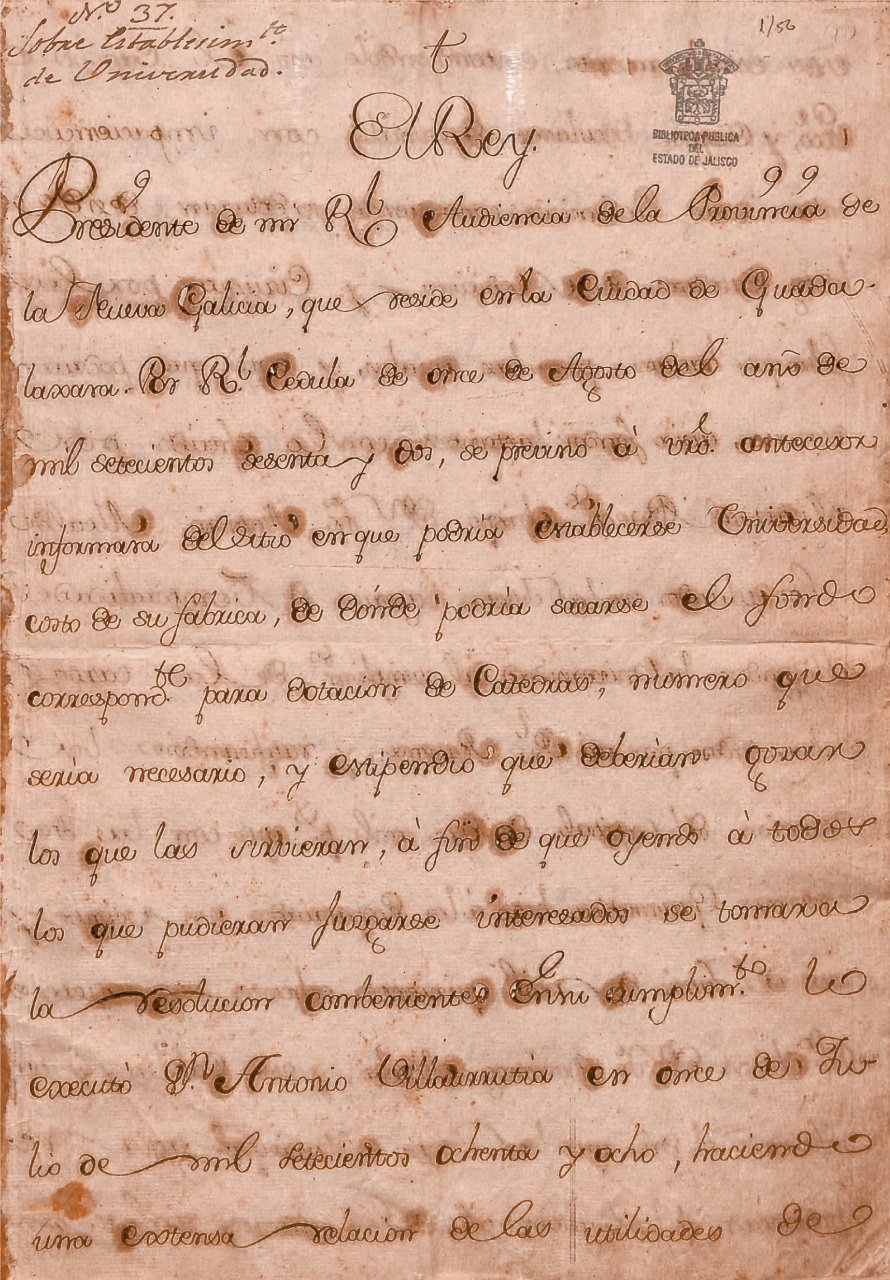 N.o 37.
Sobre Establesim.to
de Universidad.
1/56
†
El Rey.
BIBLIOTECA PUBLICA
DEL
ESTADO DE JALISCO
1
Presidente de mi R.l Audiencia de la Provincia de
la Nueva Galicia, que reside en la Ciudad de Guada-
laxara. Por R.l Cedula de once de Agosto del año de
mil setecientos sesenta y dos, se previno à vrõ. antecesor
informara del sitio en que podria establecerse Universidad,
costo de su fabrica, de donde podria sacarse el fondo
correspond.te para dotacion de Catedras, numero que
seria necesario, y estipendio que deberian gozar
los que las sirvieran, à fin de que oyendo à todos
los que pudieran Juzgarse interesados se tomara
la resolucion combeniente. En su cumplim.to lo
executó D.n Antonio Villaurrutia en once de Ju-
lio de mil setecientos ochenta y ocho, haciendo
una extensa relacion de las utilidades de